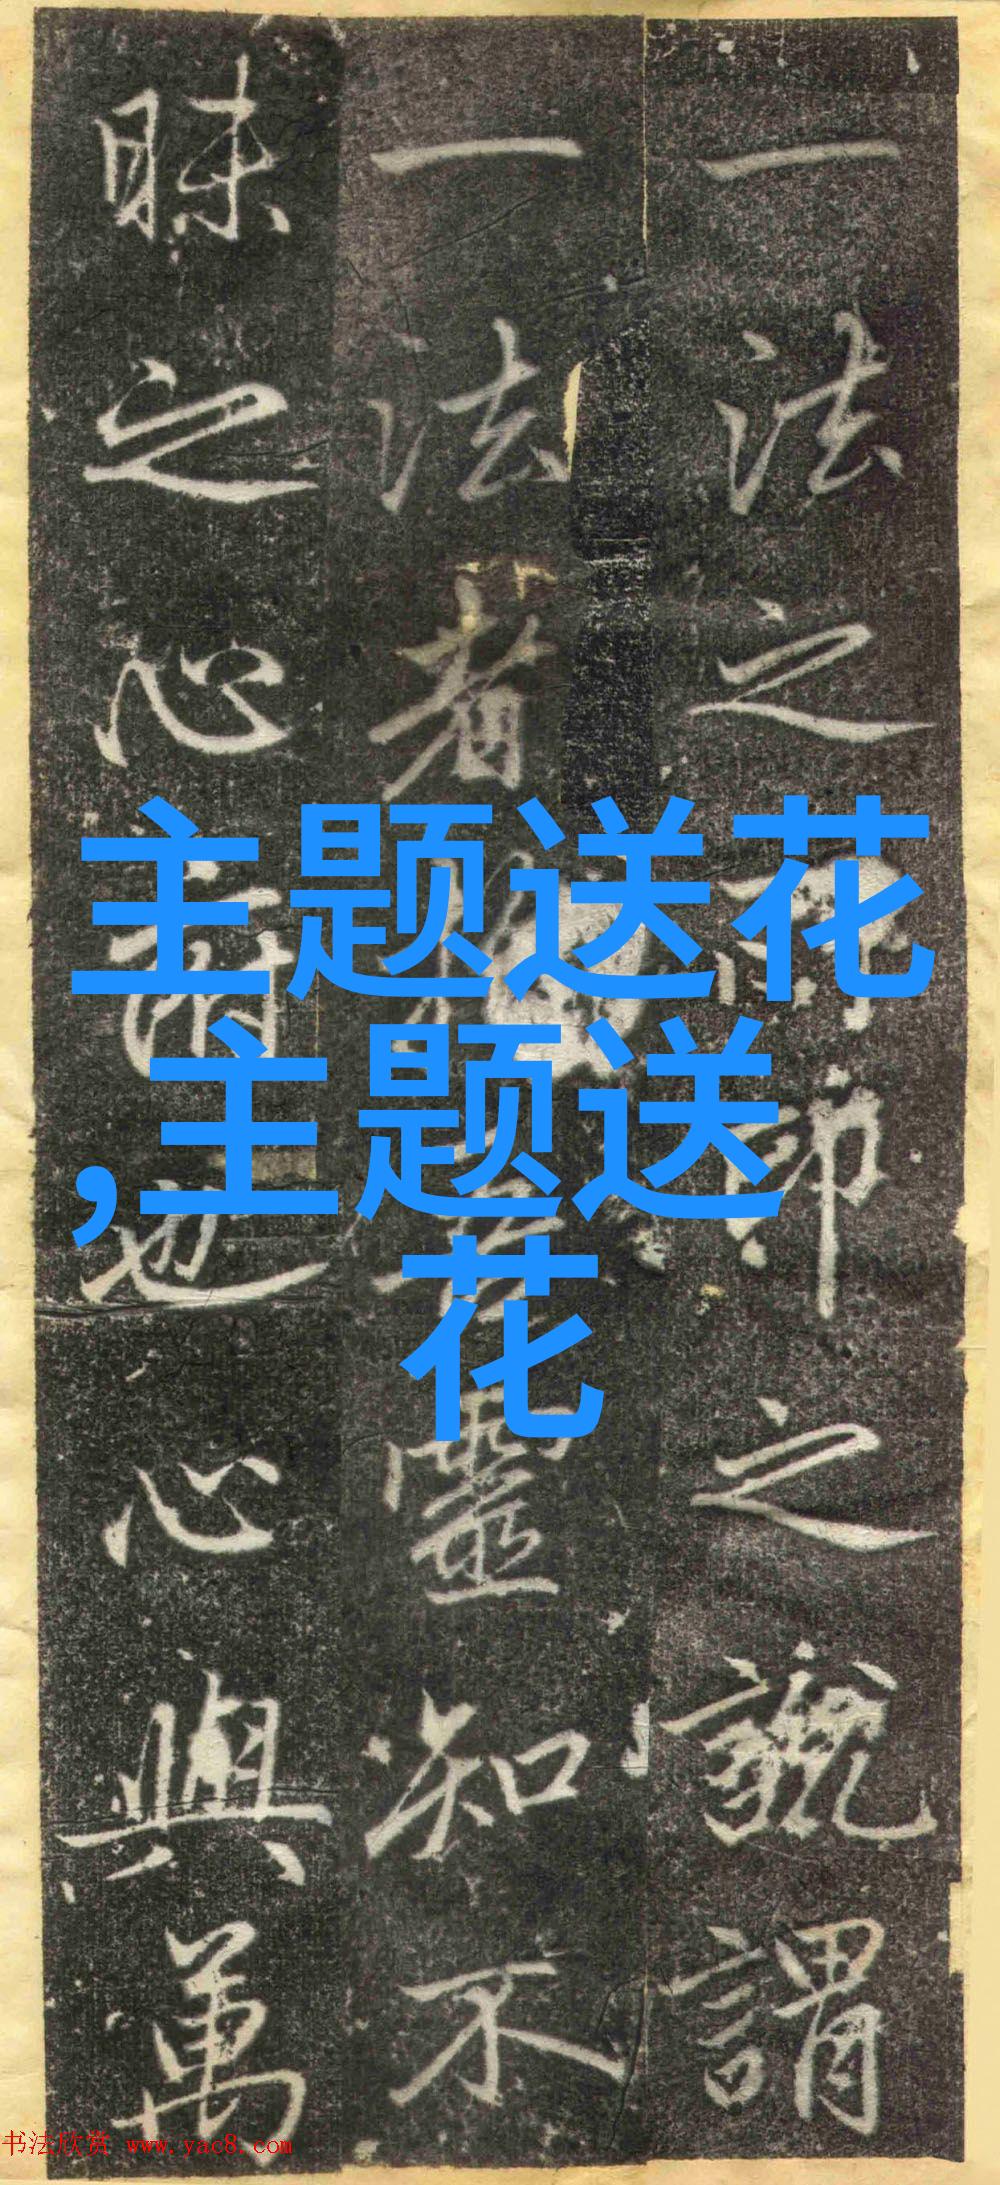 一法之
師之説謂
一法者
靈知不
昧之心
也心與萬
主题送花
,主题送
花
书法欣赏 www.yac8.com